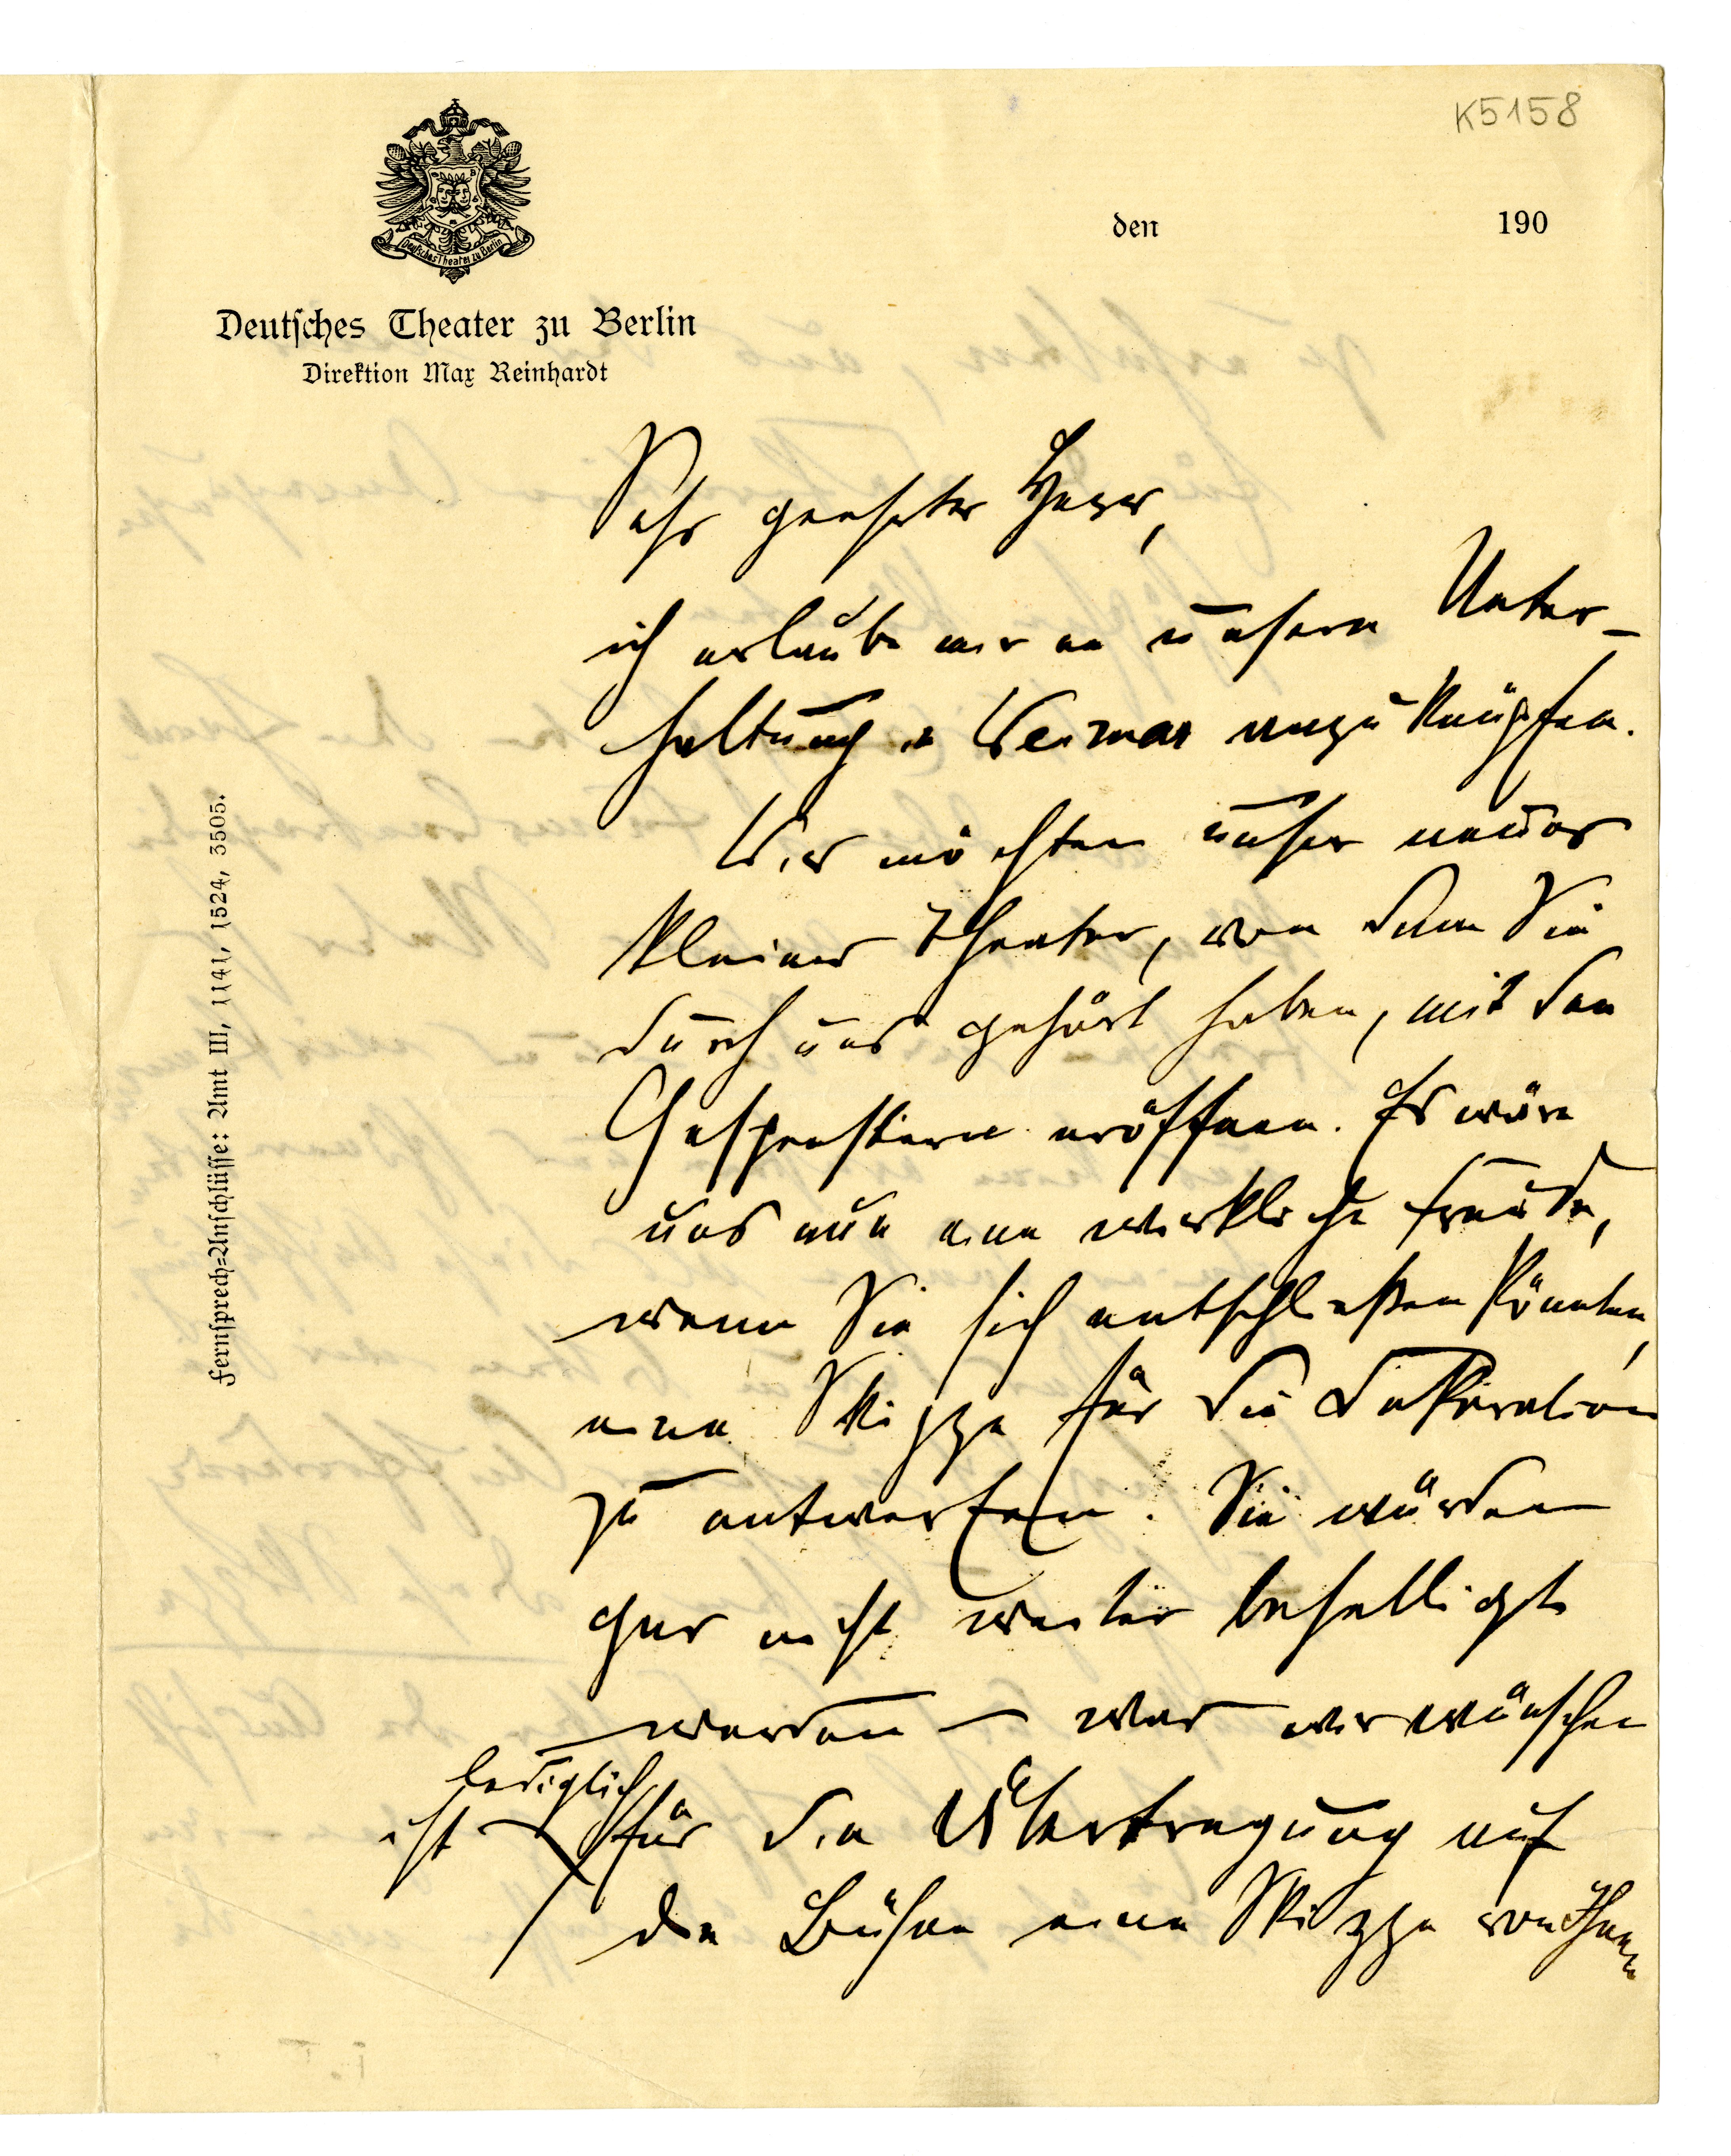 K5158
den 190
Deutsches Theater zu Berlin
Deutſches Theater zu Berlin
Direktion Max Reinhardt
Fernſprech-Anſchlüſſe: Amt III, 1141, 1524, 3505.
Sehr geehrter Herr,
ich erlaube mir an unsere Unter-
haltung in Weimar anzuknüpfen.
Wir möchten unser neues
kleines Theater, von dem Sie
durch uns gehört haben, mit den
Gespenstern eröffnen. Es wäre
uns nun eine wirkliche Freude,
wenn Sie sich entschließen könnten,
eine Skizze für die Dekoration
zu entwerfen. Sie würden
gar nicht weiter behelligt
werden – was wir wünschen
lediglich
ist für die Übertragung auf
die Bühne eine Skizze von Ihnen